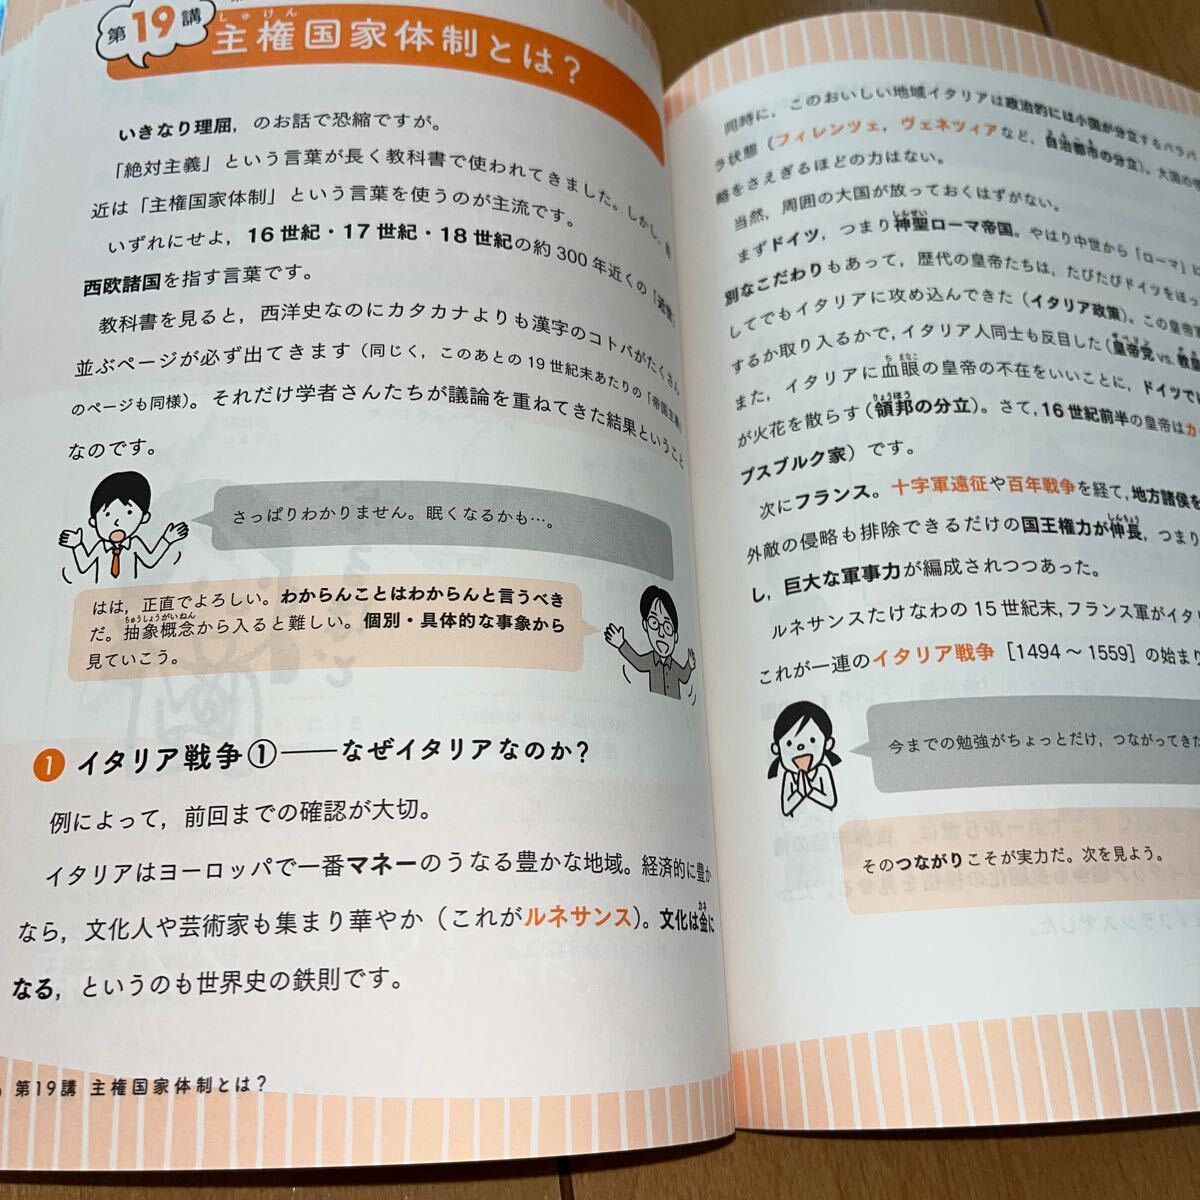 第19講
しゅけん
主権国家体制とは？
いきなり理屈，のお話で恐縮ですが。
「絶対主義」という言葉が長く教科書で使われてきました。しかし，最
近は「主権国家体制」という言葉を使うのが主流です。
いずれにせよ，16世紀・17世紀・18世紀の約300年近くの「近世」
西欧諸国を指す言葉です。
教科書を見ると，西洋史なのにカタカナよりも漢字のコトバがたくさん
並ぶページが必ず出てきます（同じく，このあとの19世紀末あたりの「帝国主義」
のページも同様）。それだけ学者さんたちが議論を重ねてきた結果ということ
なのです。
さっぱりわかりません。眠くなるかも…。
はは，正直でよろしい。わからんことはわからんと言うべき
ちゅうしょうがいねん
だ。抽象概念から入ると難しい。個別・具体的な事象から
見ていこう。
1 イタリア戦争①――なぜイタリアなのか？
例によって，前回までの確認が大切。
イタリアはヨーロッパで一番マネーのうなる豊かな地域。経済的に豊か
なら，文化人や芸術家も集まり華やか（これがルネサンス）。文化は金に
カネ
なる，というのも世界史の鉄則です。
第19講 主権国家体制とは？
同時に，このおいしい地域イタリアは政治的には小国が分立するバラバ
ラ状態（フィレンツェ，ヴェネツィアなど，自治都市の分立）。大国の
略をさえぎるほどの力はない。
当然，周囲の大国が放っておくはずがない。
しんせい
まずドイツ，つまり神聖ローマ帝国。やはり中世から「ローマ」に
別なこだわりもあって，歴代の皇帝たちは，たびたびドイツをほっ
してでもイタリアに攻め込んできた（イタリア政策）。この皇帝
するか取り入るかで，イタリア人同士も反目した（皇帝党 vs. 教皇
ち まなこ
また，イタリアに血眼の皇帝の不在をいいことに，ドイツでは
りょうほう
が火花を散らす（領邦の分立）。さて，16世紀前半の皇帝はカ
プスブルク家）です。
次にフランス。十字軍遠征や百年戦争を経て，地方諸侯を
しんちょう
外敵の侵略も排除できるだけの国王権力が伸長，つまり
し，巨大な軍事力が編成されつつあった。
ルネサンスたけなわの15世紀末，フランス軍がイタリ
これが一連のイタリア戦争［1494～1559］の始まり
今までの勉強がちょっとだけ，つながってきた
そのつながりこそが実力だ。次を見よう。